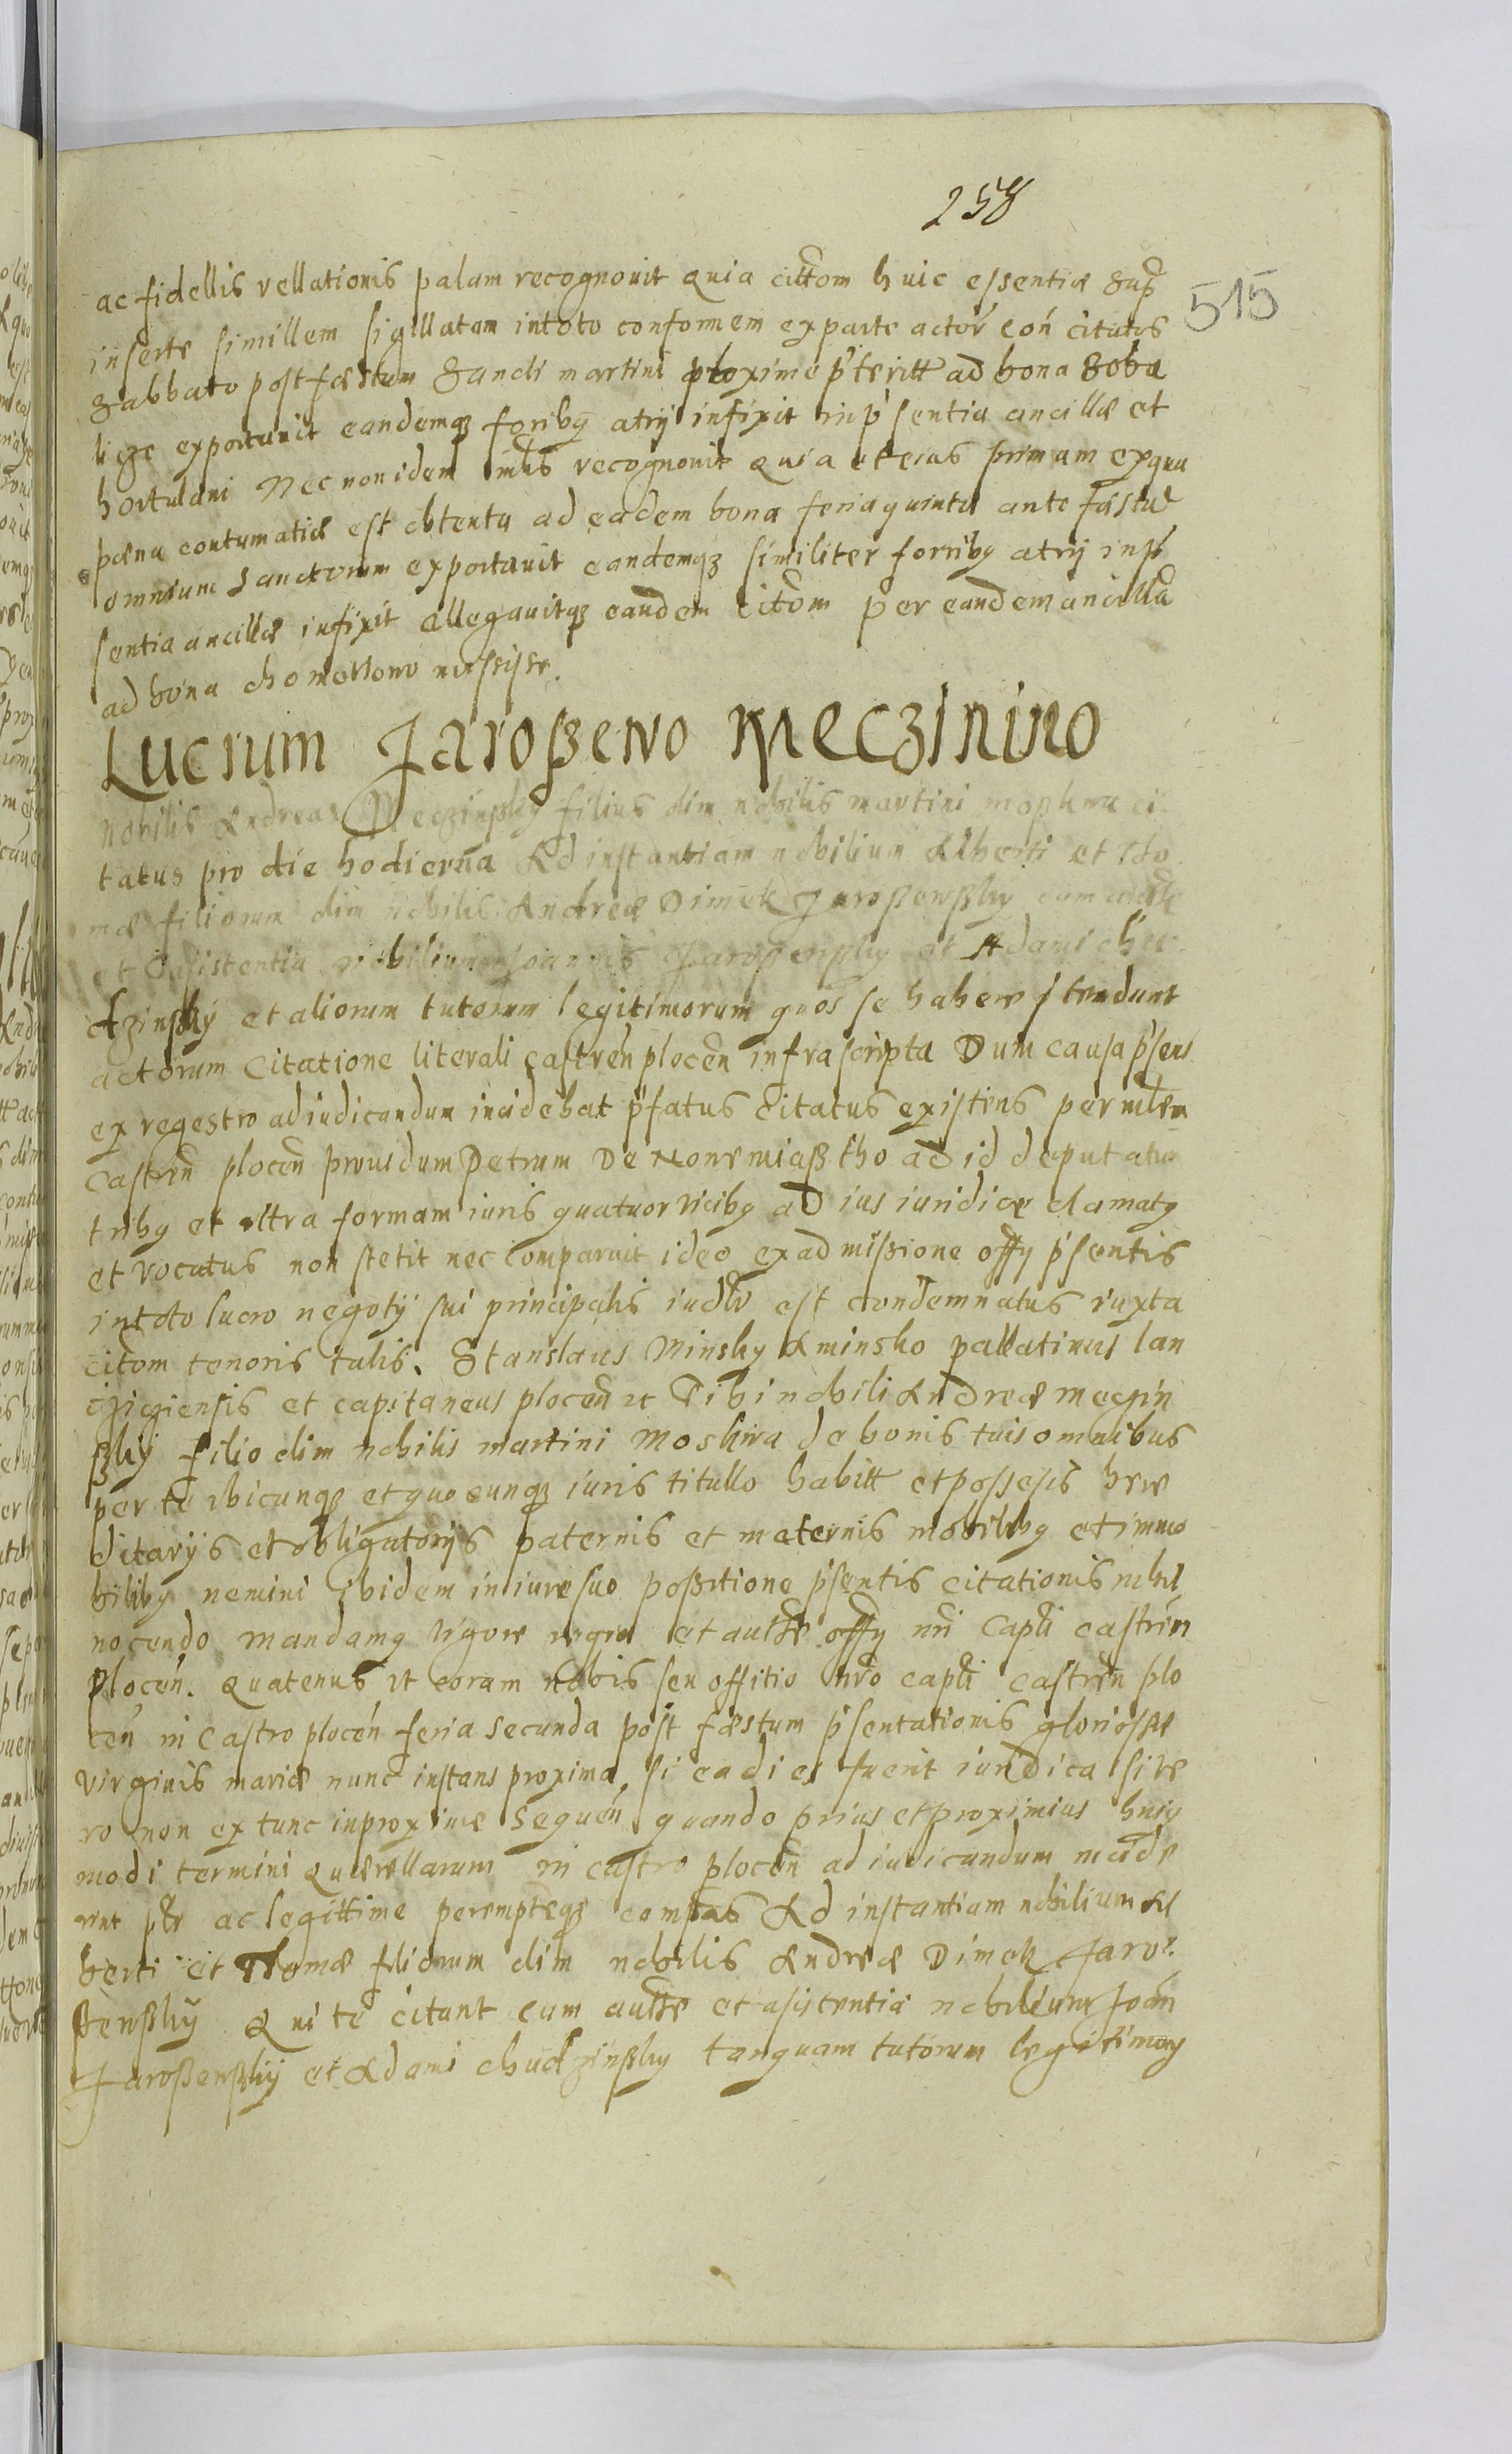 258
515
ac fidellis rellationis palam recognovit quia cittom huic essentiæ sup
inserte simillem sigillatam in toto conformem ex parte actor con citatos
Sabbato post fæstum Sancti martini proxime pʼteritt ad bona Soba
exportavit eandemqz foribq atrij infixit in pʼsentia ancillæ et
hortulani Nec non idem mlis recognovit quia et eius primam ex qua
pæna contumatiæ est obtenta ad eadem bona feria quinta ante fæstu
omnium Sanctorum exportavit eandemqz similiter forribq atrij in pʼ
sentia ancillæ infixit allegavitqz eandem citom per eandem ancilla
ad bona chometowo mississe.
Lucrum Jaroßewo Meczinino
Nobilis Andreas Meczinsky filius olim nobilis martini moskwa ci
tatus pro die hodierna Ad instantiam nobilium Alberti et tho
mæ filiorum olim nobilis Andreæ Dimek Jaroßewsky cum autte
et asistentia nobilium Joannis Jaroßewsky et Adami chu
dzinsky et aliorum tutorum legitimorum quos se habere itendunt
actorum Citatione literali castren plocen infra scripta Dum causa pʼsens
ex regestro adiudicandum incidebat pʼfatus Citatus existens per mlem
Castren plocen provisdum Petrum De Nowemiaßtho ad id deputatu
tribq et ultra formam iuris quatuor vicibq ad ius iuridice clamatq
et vocatus non stetit nec comparuit ideo ex admissione offy pʼsentis
in toto lucro negotij sui principalis iudlr est condemnatus iuxta
citom tenoris talis. Stanslaus Minsky A minsko pallatinus lan
ciciensis et capitaneus plocen et Tibi nobili Andreæ meczin
sky filio olim nobilis martini Moskwa de bonis tuis omnibus
per te ubicunqz et quocunqz iuris titullo habitt et possesis here
ditarijs et obligatorijs paternis et maternis mobilibq et immo
bilibq nemini ibidem in iure suo poßitione pʼsentis citationis nihil
nocendo mandamq vigore regia et autte offy nri Capli castren
plocen. Quatenus ut coram nobis seu offitio nro capli castren plo
cen in Castro plocen feria secunda post fæstum pʼsentationis gloriossæ
virginis mariæ nunc instans proxima, si ea dies fuerit iuridica si ve
ro non ex tunc in proxime sequen quando prius et proximius huiq
modi termini quærellarum in castro plocen ad iudicandum incide
rint plr ac legittime peremptoqz compas Ad instantiam nobilium Al
berti et Thomæ filiorum olim nobilis Andreæ Dimek Jaro
ßewsky Qui te citant cum autte et asistentia nobilium Joan
Jaroßewsky et Adami chudzinsky tanquam tutorum legitimoq